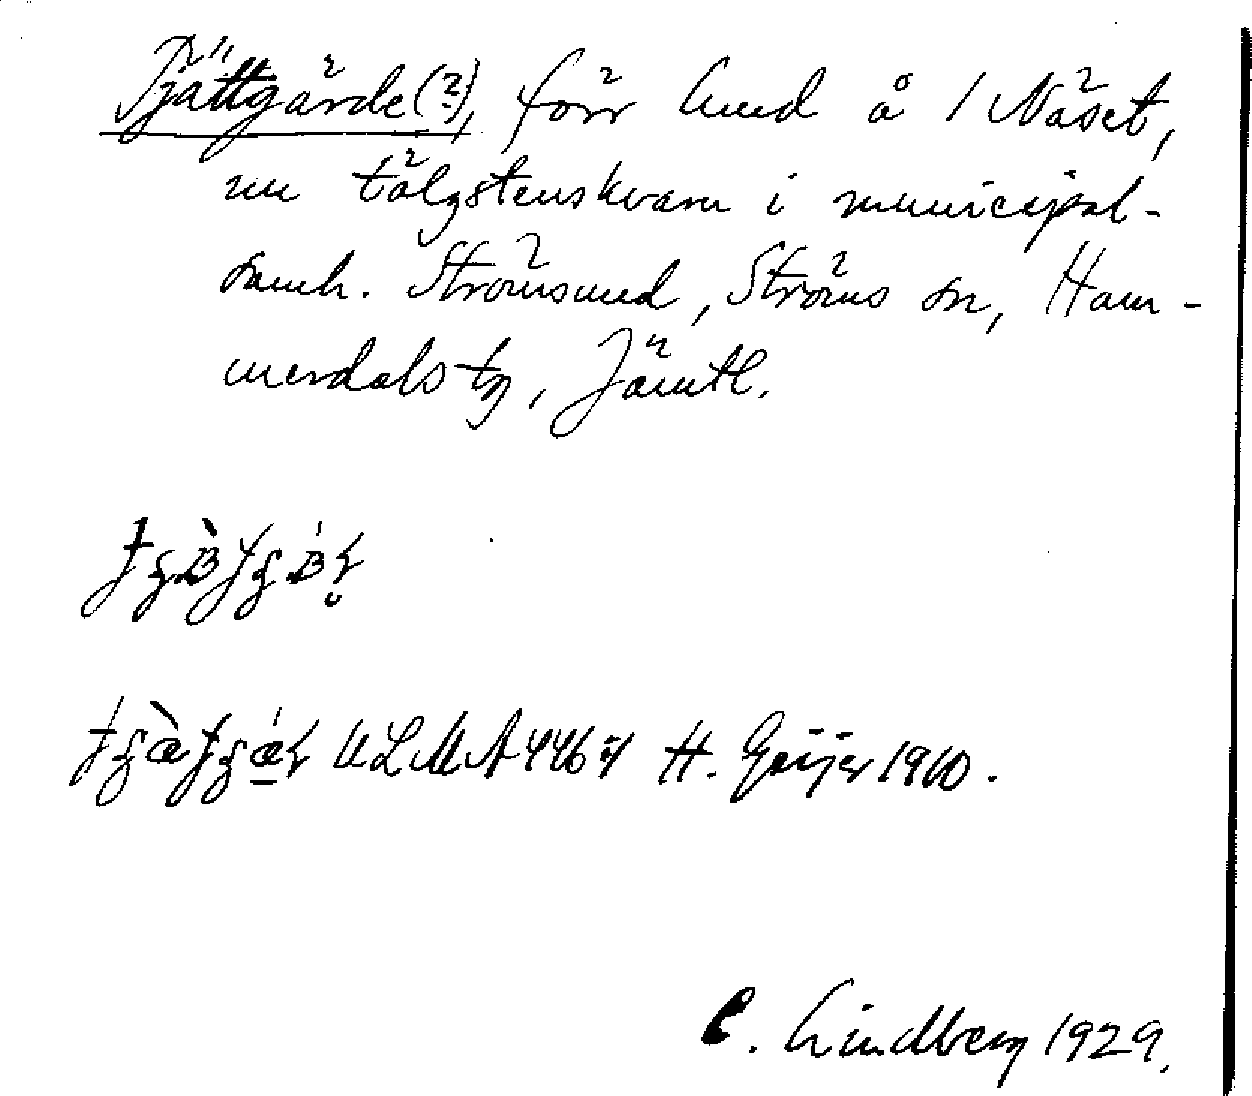 Tjättgärde(?), förr lund å 1 Näset,
nu tälgstenskvarn i municipal-
samh. Strömsund, Ströms sn, Ham-
merdals tg, Jämtl.
ULMA 446:4 H. Geijer 1910.
C. Lindberg 1929.